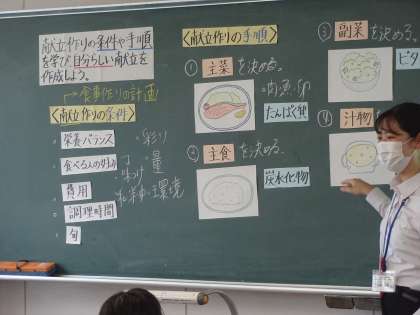 献立作りの条件や手順
を学び、自分らしい献立を
作成しよう。
→食事作りの計画
<献立作りの条件>
・栄養バランス
・彩り
・食べる人の好み
・量
・費用
・調理時間
・旬
・環境
<献立作りの手順>
① 主菜を決める。
・肉・魚・卵
たんぱく質
② 主食を決める。
炭水化物
③ 副菜を決める。
ビタ
④ 汁物